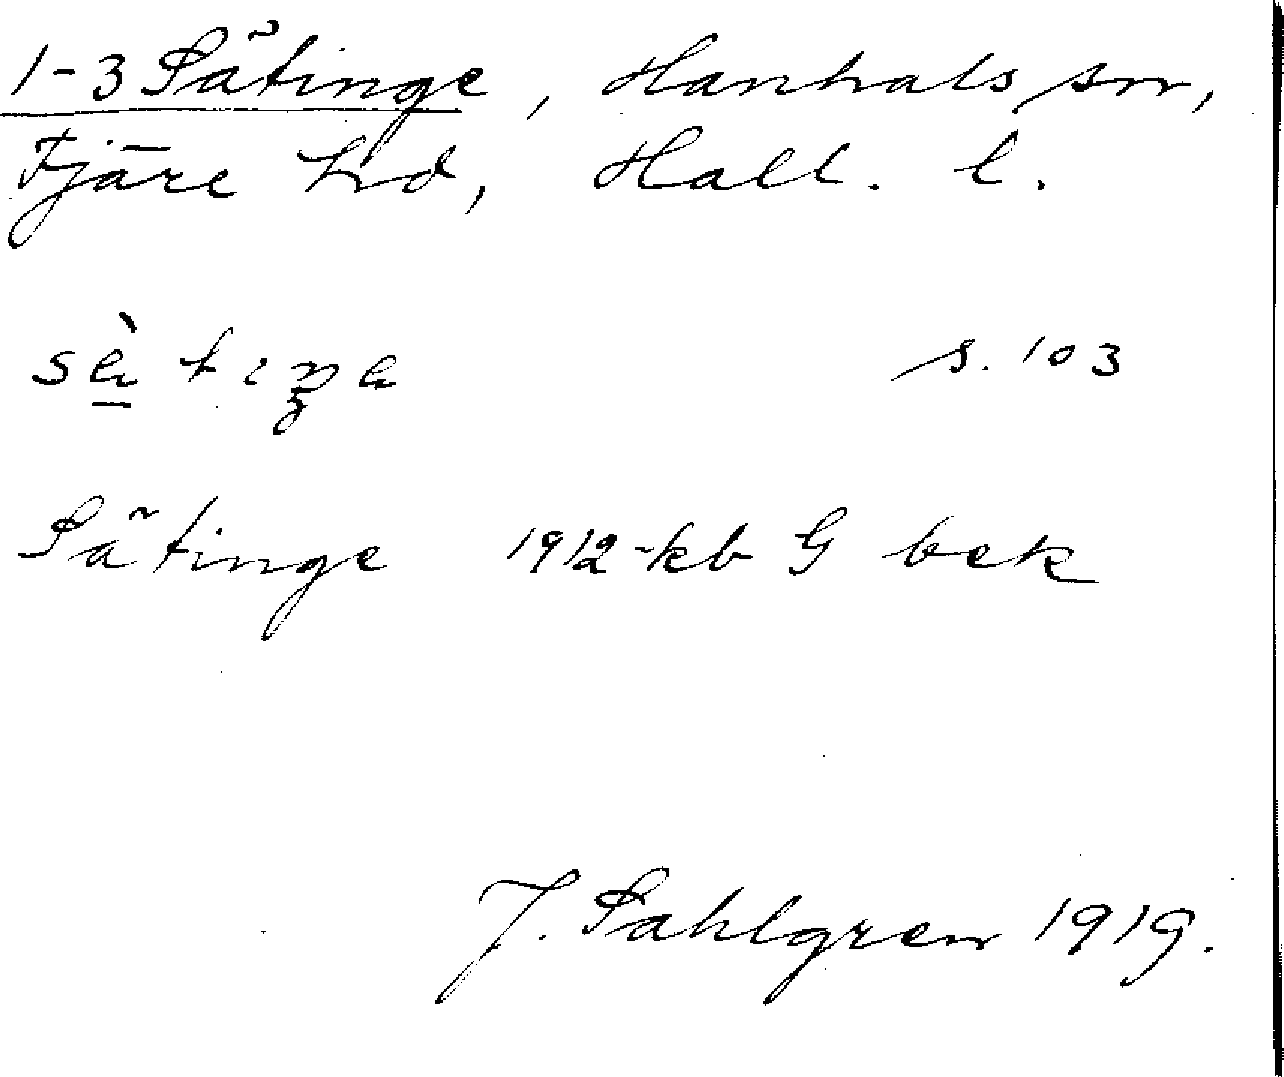 1-3 Sätinge, Hanhals sn,
Fjäre hd, Hall. l.
s. 103
Sätinge 1912 kb G bek
J. Sahlgren 1919.